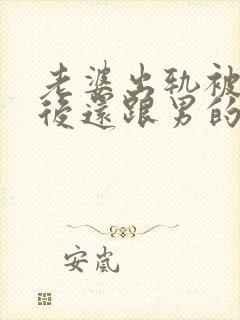 老婆出轨被
後還跟男的
安岚